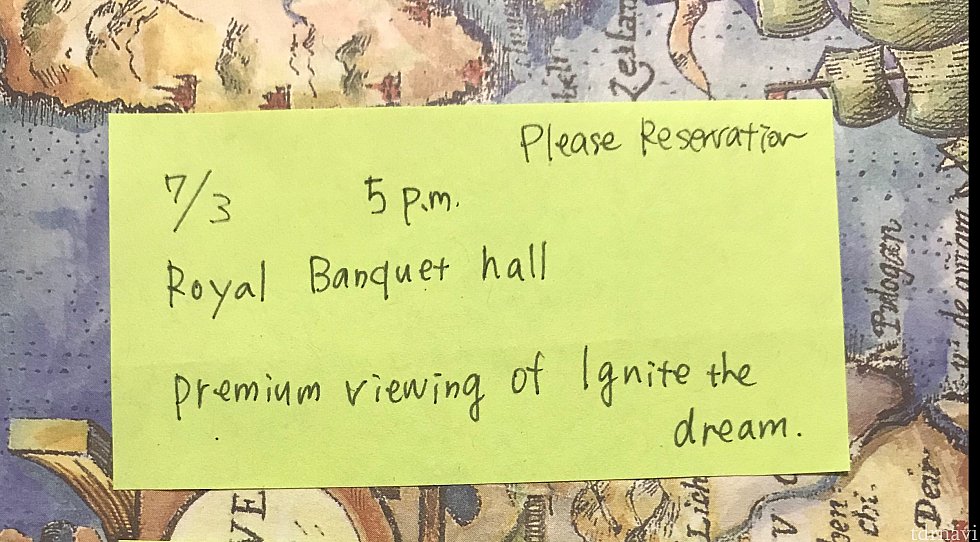 Please Reservation
7/3 5 p.m.
Royal Banquet hall
premium viewing of Ignite the
dream.
Zeilan
Pulogan
VE
Dear
chi.
tdrnavi